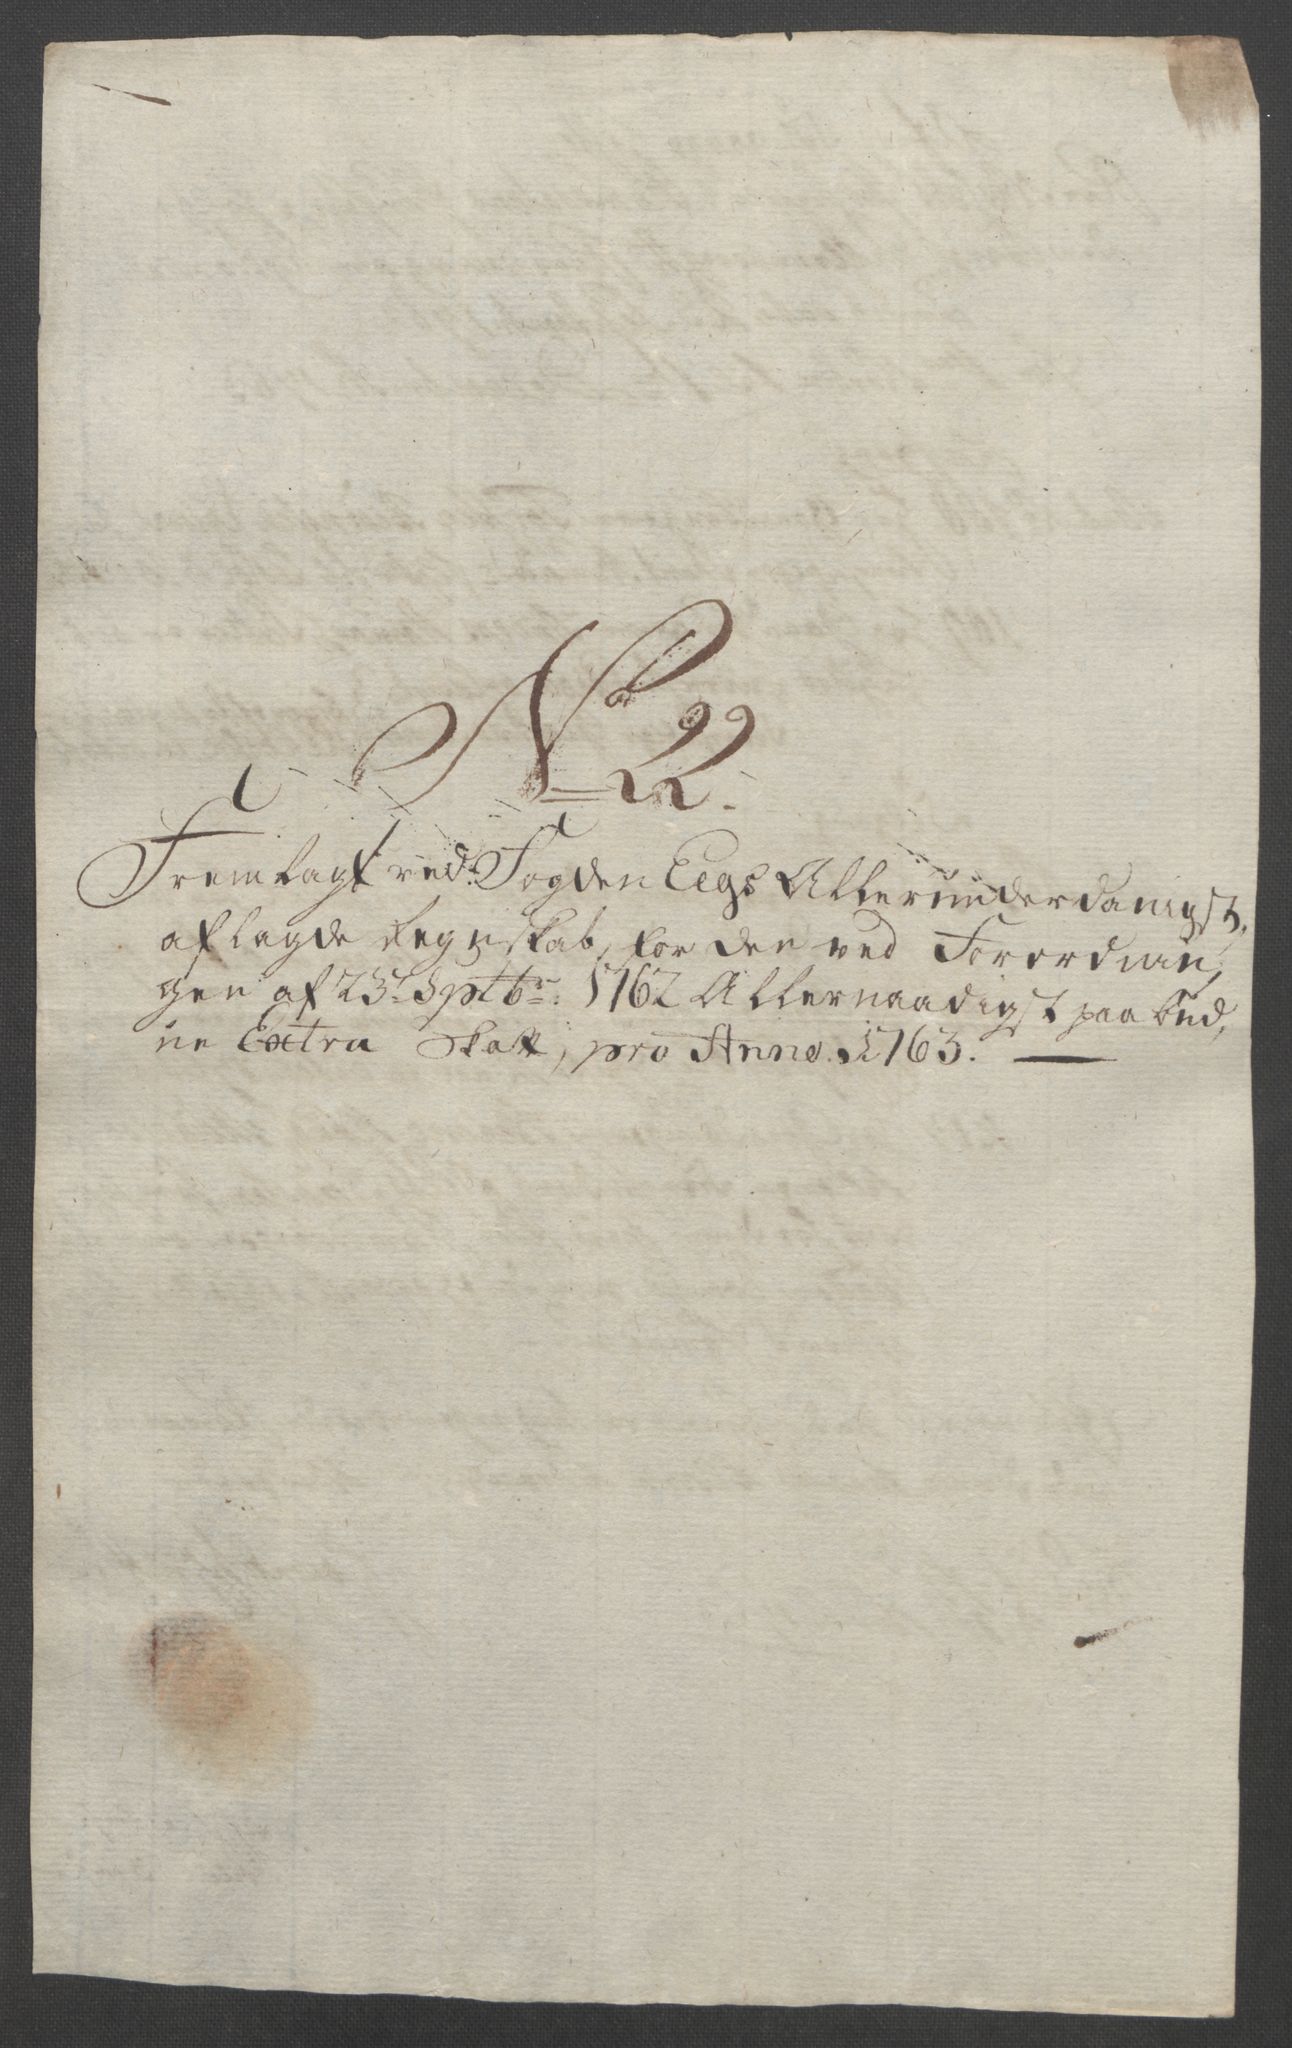 No 22.
Fremlagt ved Fogden Eegs Allerunderdanigst,
aflagde Regnskab, for den ved Forordnin,
gen af 23de Sptbr: 1762 Allernaadigst paabud,
ne Extra Skatt, pro Anno. 1763.